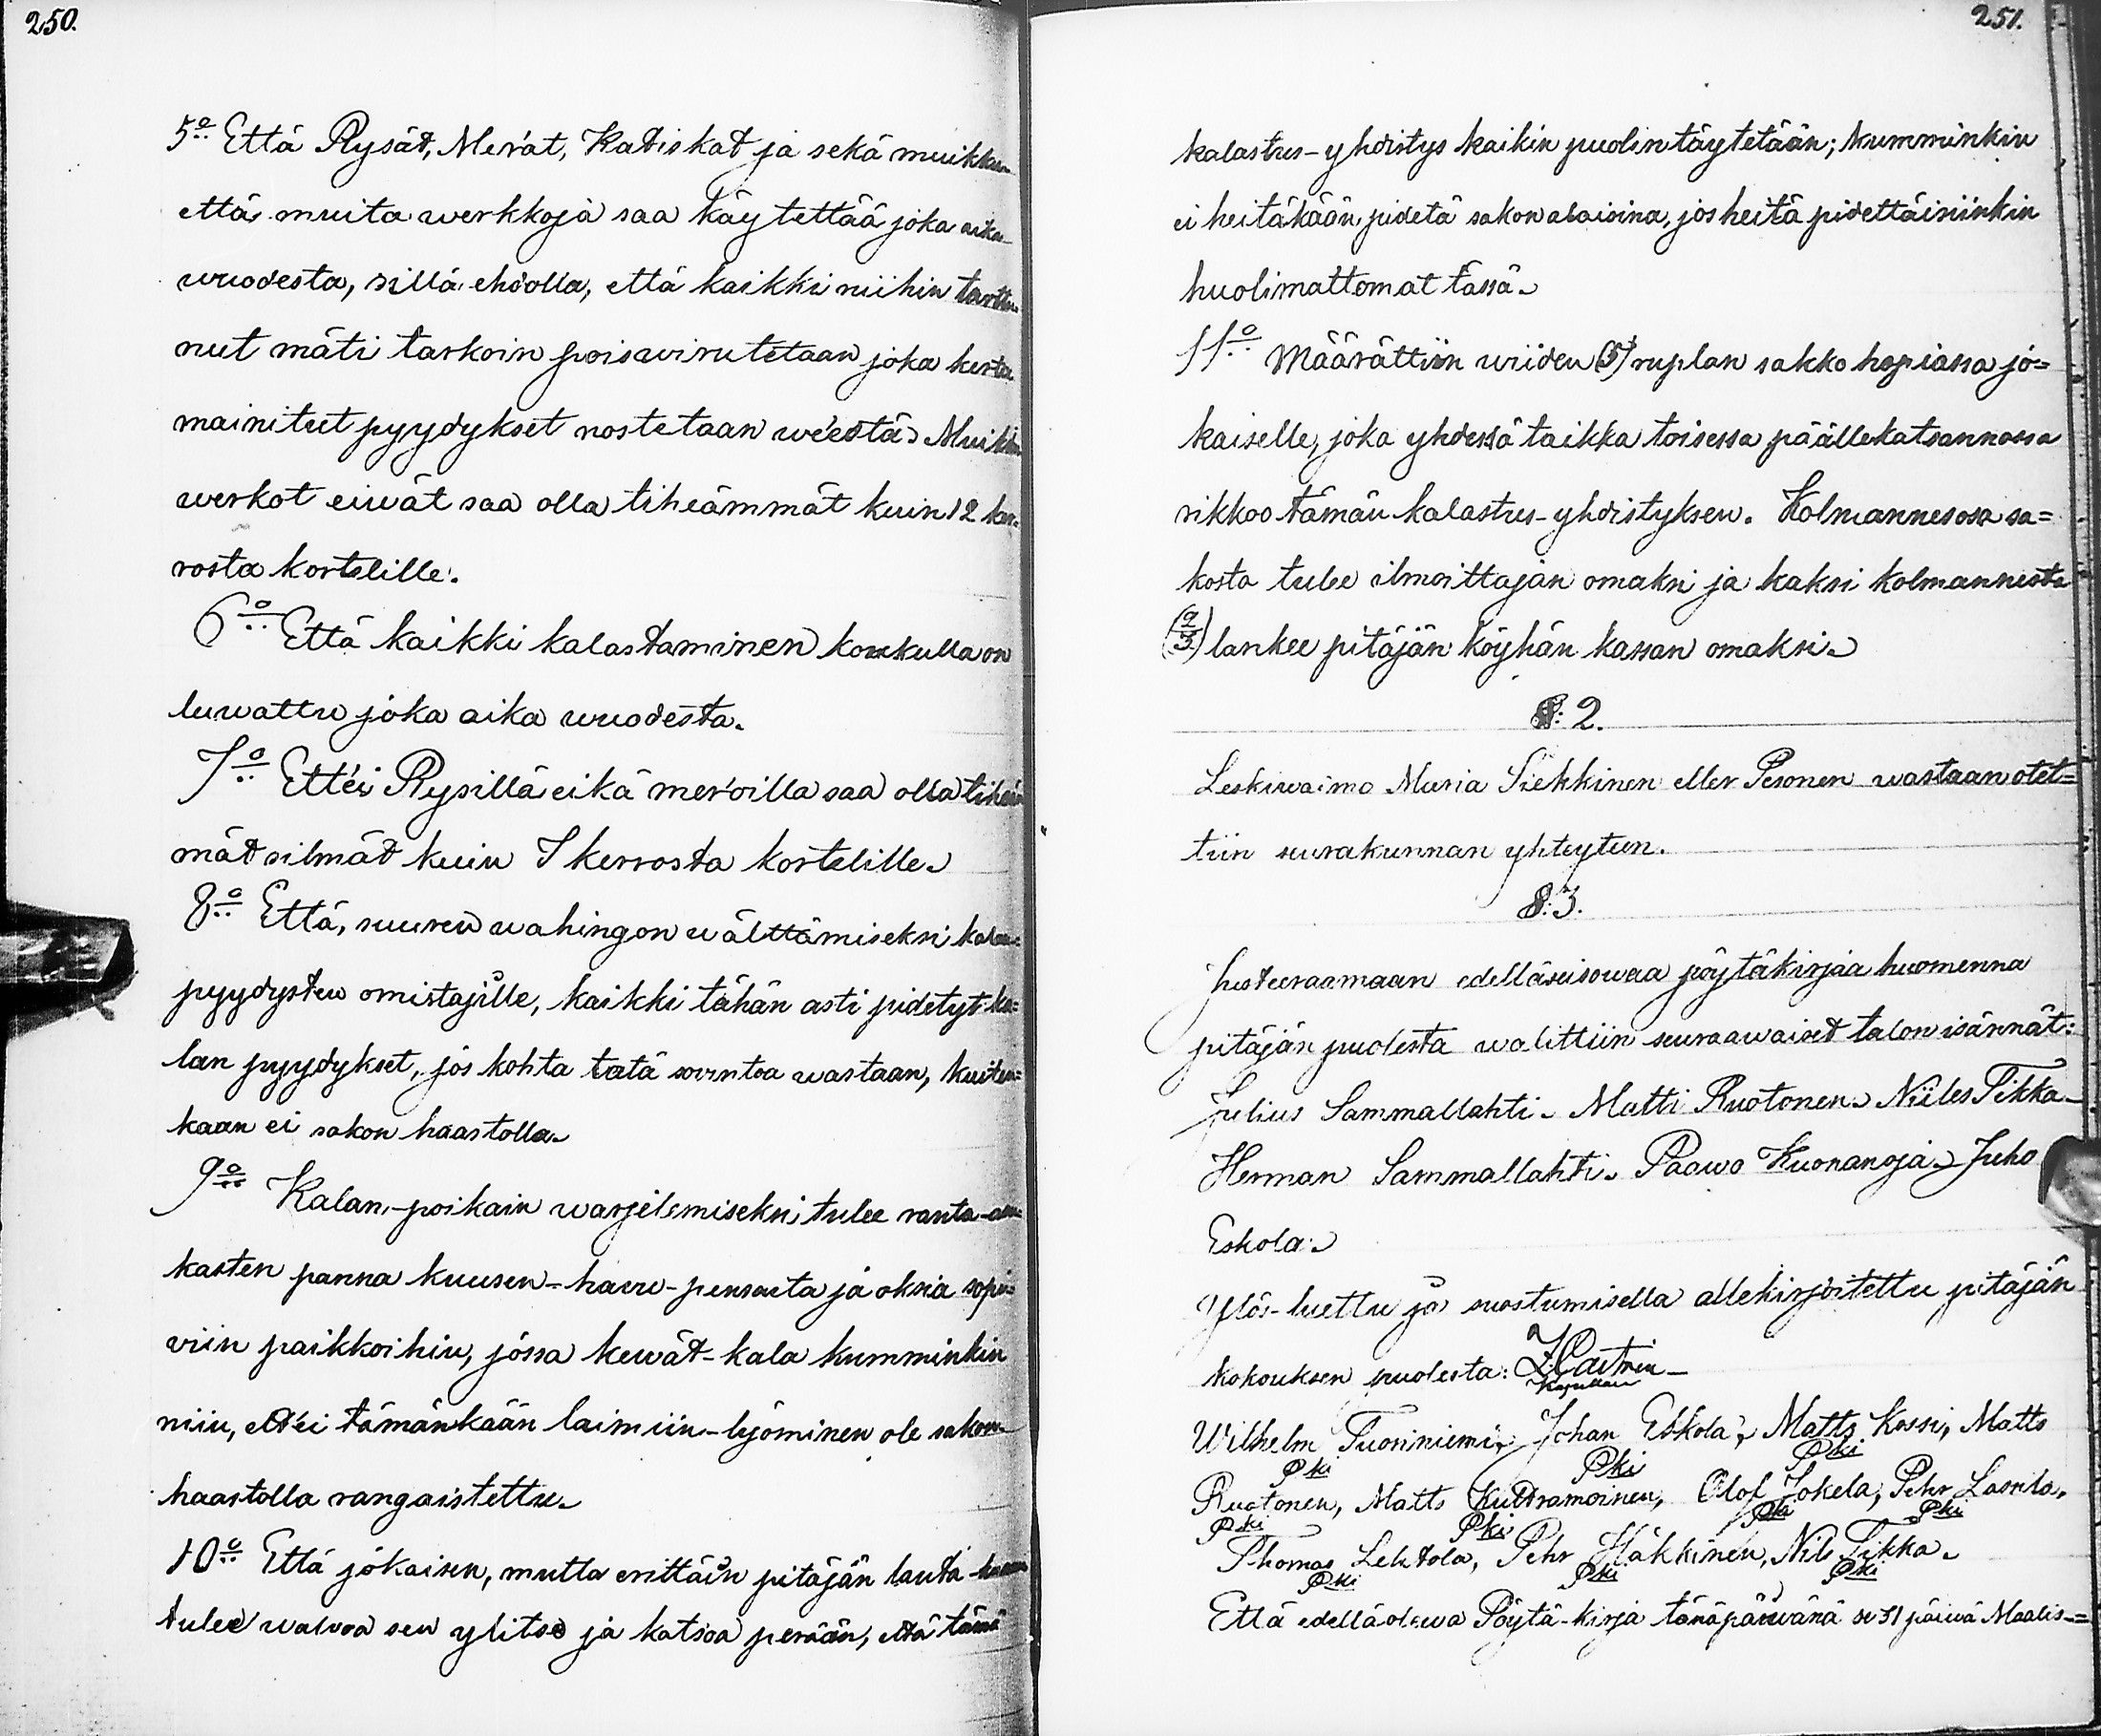 250.
5o Että Rysät, Merrat, Katiskat ja sekä muikku-
että muita werkkoja saa käytettää joka aika
wuodesta, sillä ehdolla, että kaikki niihin tarttu-
nut mäti tarkoin poiswirutetaan joka kerta
mainitut pyydykset nostetaan weestä. Muikku
werkot eiwät saa olla tiheämmät kuin 12 ker-
rosta kortelille.
6o Että kaikki kalastaminen koukulla on
luwattu joka aika wuodesta.
7o Ett'ei Rysillä eikä merroilla saa olla tiheäm
mät silmät kuin 7 kerrosta kortelille.
8o Että, suuren wahingon wälttämiseksi kalan-
pyydysten omistajille, kaikki tähän asti pidetyt ka=
lan pyydykset, jos kohta tätä sowintoa wastaan, kuiten=
kaan ei sakon haastolla.
9o Kalan-poikain warjelemiseksi tulee ranta-asu
kasten panna kuusen-hawu-pensaita ja oksia sopi-
viin paikkoihin, jossa kewät-kala kumminkin
niin, ett'ei tämänkään laimiin-lyöminen ole sakon-
haastolla rangaistettu.
10o Että jokaisen, mutta erittäin pitäjän lauta-
tulee walvoa sen ylitse ja katsoa perään, että tämä
251.
kalastus-yhdistys kaikin puolin täytetään; kumminkin
ei heitäkään pidetä sakon alaisina, jos heitä pidettäisiinkin
huolimattomat tässä.
11o Määrättiin wiiden (5) ruplan sakko hopiassa jo=
kaiselle, joka yhdessä taikka toisessa päällekatsannossa
rikkoo tämän kalastus-yhdistyksen. Kolmannesosa sa=
kosta tulee ilmoittajan omaksi ja kaksi kolmannesta
(2/3) lankee pitäjän köyhän kassan omaksi.
§: 2.
Leskiwaimo Maria Siekkinen eller Pesonen wastaanotet=
tiin seurakunnan yhteyteen.
§: 3.
Justeeraamaan edelläseisowaa pöytäkirjaa huomenna
pitäjän puolesta walittiin seuraawaiset talon isännät:
Julius Sammallahti. Matti Ruotonen. Niiles Tikka.
Herman Sammallahti. Paawo Kuonanoja. Juho
Eskola.
Ylös-luettu ja suostumisella allekirjoitettu pitäjän
kokouksen puolesta: Z. Castrén
Kapellan
Wilhelm Tuoriniemi, Johan Eskola, Matts Kossi, Matts
Pki Pki Pki
Ruotonen, Matts Kuttramoinen, Olof Jokela, Pehr Lassila,
Pki Pki Pki Pki
Thomas Lehtola, Pehr Häkkinen, Nils Tikka.
Pki Pki Pki
Että edelläolewa Pöytä-kirja tänäpäiwänä se 31 päiwä Maalis-=